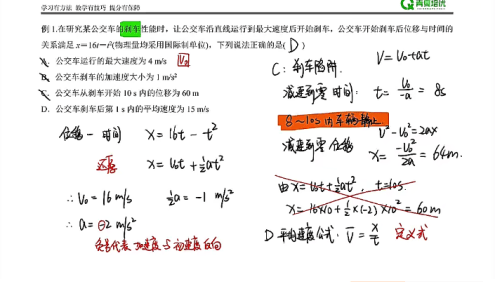 学习有方法 教学有技巧 提分有保障
青奥培优
例 1.在研究某公交车的刹车性能时,让公交车沿直线运行到最大速度后开始刹车,公交车开始刹车后位移与时间的
关系满足 x=16t-t²(物理量均采用国际制单位),下列说法正确的是( D )
A. 公交车运行的最大速度为 4 m/s V₀
B. 公交车刹车的加速度大小为 1 m/s²
C. 公交车从刹车开始 10 s 内的位移为 60 m
D. 公交车刹车后第 1 s 内的平均速度为 15 m/s
位移一时间 x=16t-t²
x=V₀t+½at²
∴V₀=16 m/s ½a=-1 m/s²
∴a=-2 m/s²
负号代表加速度与初速度反向
V=V₀+at
C:刹车陷阱.
减速到零时间: t=V₀/-a=8s
8~10s内车辆静止
V²-V₀²=2ax
减速到零位移 x=-V₀²/2a=64m.
由x=V₀t+½at², t=10s
x=16×10+½×(-2)×10²=60m
D 平均速度公式: V̄=x/t 定义式